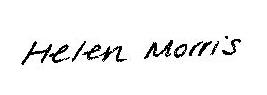 Helen Morris